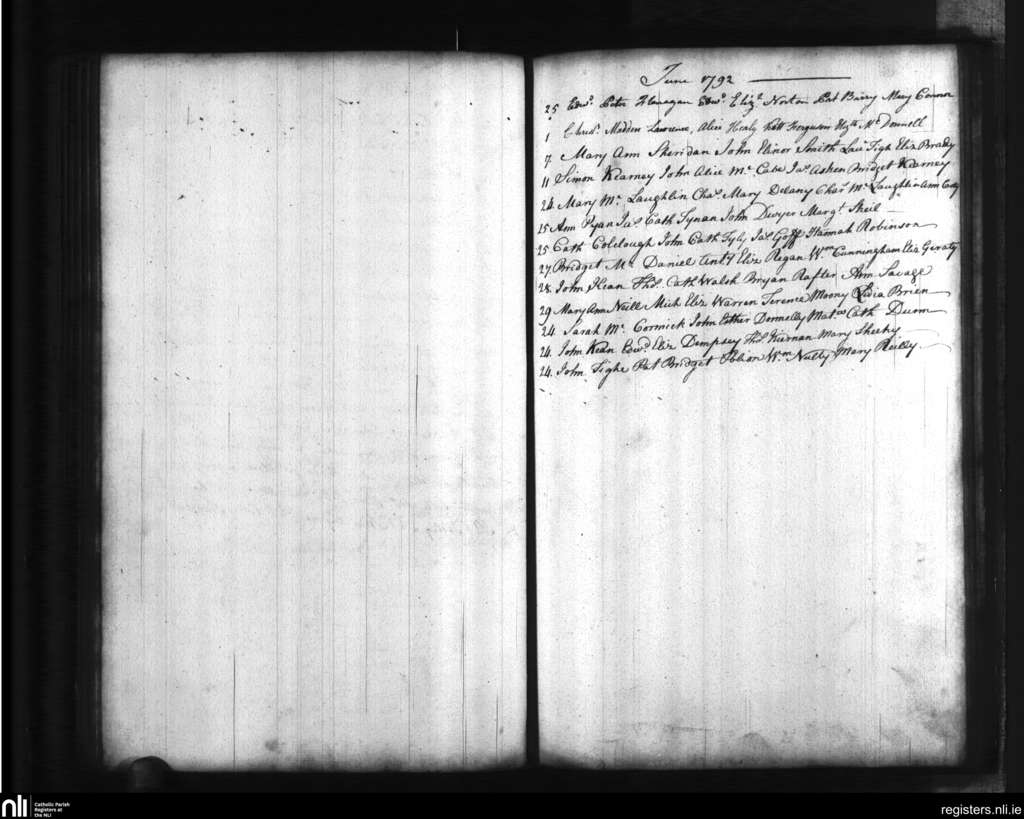 June 1792
25 Edwd. Peter Flanagan Edwd. Elizh. Norton Pat Barry Mary Connor
1 Christ. Madden Lawrence, Alice Henly Mc Donnell
7 Mary Ann Sheridan John Elinor Smith Lau Tigh Eliz Brady
11 Simon Kearney John Alice Mc. Cabe Jas. Asken Bridget Kearney
24 Mary Mc. Laughlin Chas. Mary Delany Chas. Mc. Laughlin Ann
25 Ann Ryan Jas. Cath Synan John Dwyer Margt. Sheil
25 Cath Colclough John Cath Tyly Jas. Goff Hannah Robinson
27 Bridget Mc. Daniel Anty Eliz Regan Wm. Cunningham Eliz Geraty
28 John Kean Thos. Cath Walsh Bryan Rafter Ann Savage
29 Mary Ann Neill Mich Eliz Warren Terence Mooney Lidia Brien
24 Sarah Mc. Cormick John Esther Donnelly Cath Dunn
24 John Kean Edwd. Eliz Dempsey Thos. Kiernan Mary Sheehy
24 John Tighe Pat Bridget Wm. Nulty Mary Reilly
nli
Catholic Parish
Registers at
the NLI
registers.nli.ie